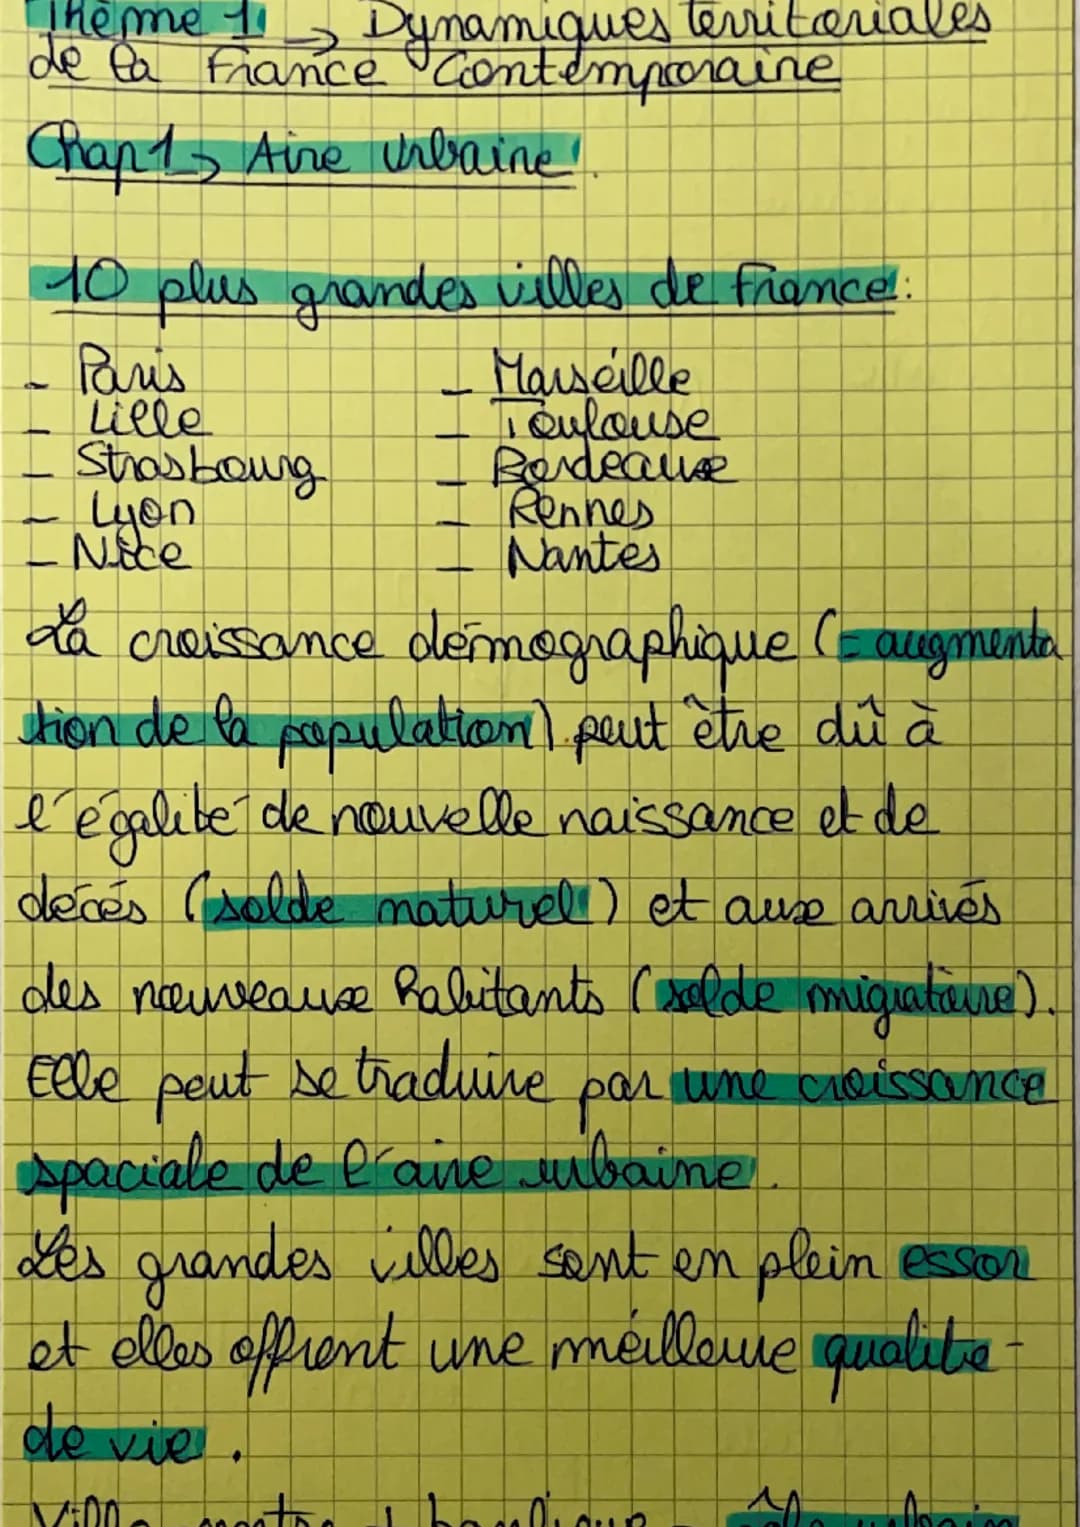 Thème 1 → Dynamiques territoriales
de la France Contemporaine
Chap 1 → Aire Urbaine
10 plus grandes villes de France:
- Paris
- Lille
- Strasbourg
- Lyon
- Nice
- Marseille
- Toulouse
- Bordeaux
- Rennes
- Nantes
La croissance démographique (= augmenta
tion de la population) peut être dû à
l'égalité de nouvelle naissance et de
décés (solde naturel) et aux arrivés
des nouveaux habitants (solde migratoire).
Elle peut se traduire par une croissance
spaciale de l'aire urbaine.
Les grandes villes sont en plein essor
et elles offrent une meilleure qualité
de vie.
Ville centre + banlieue = pôle urbain